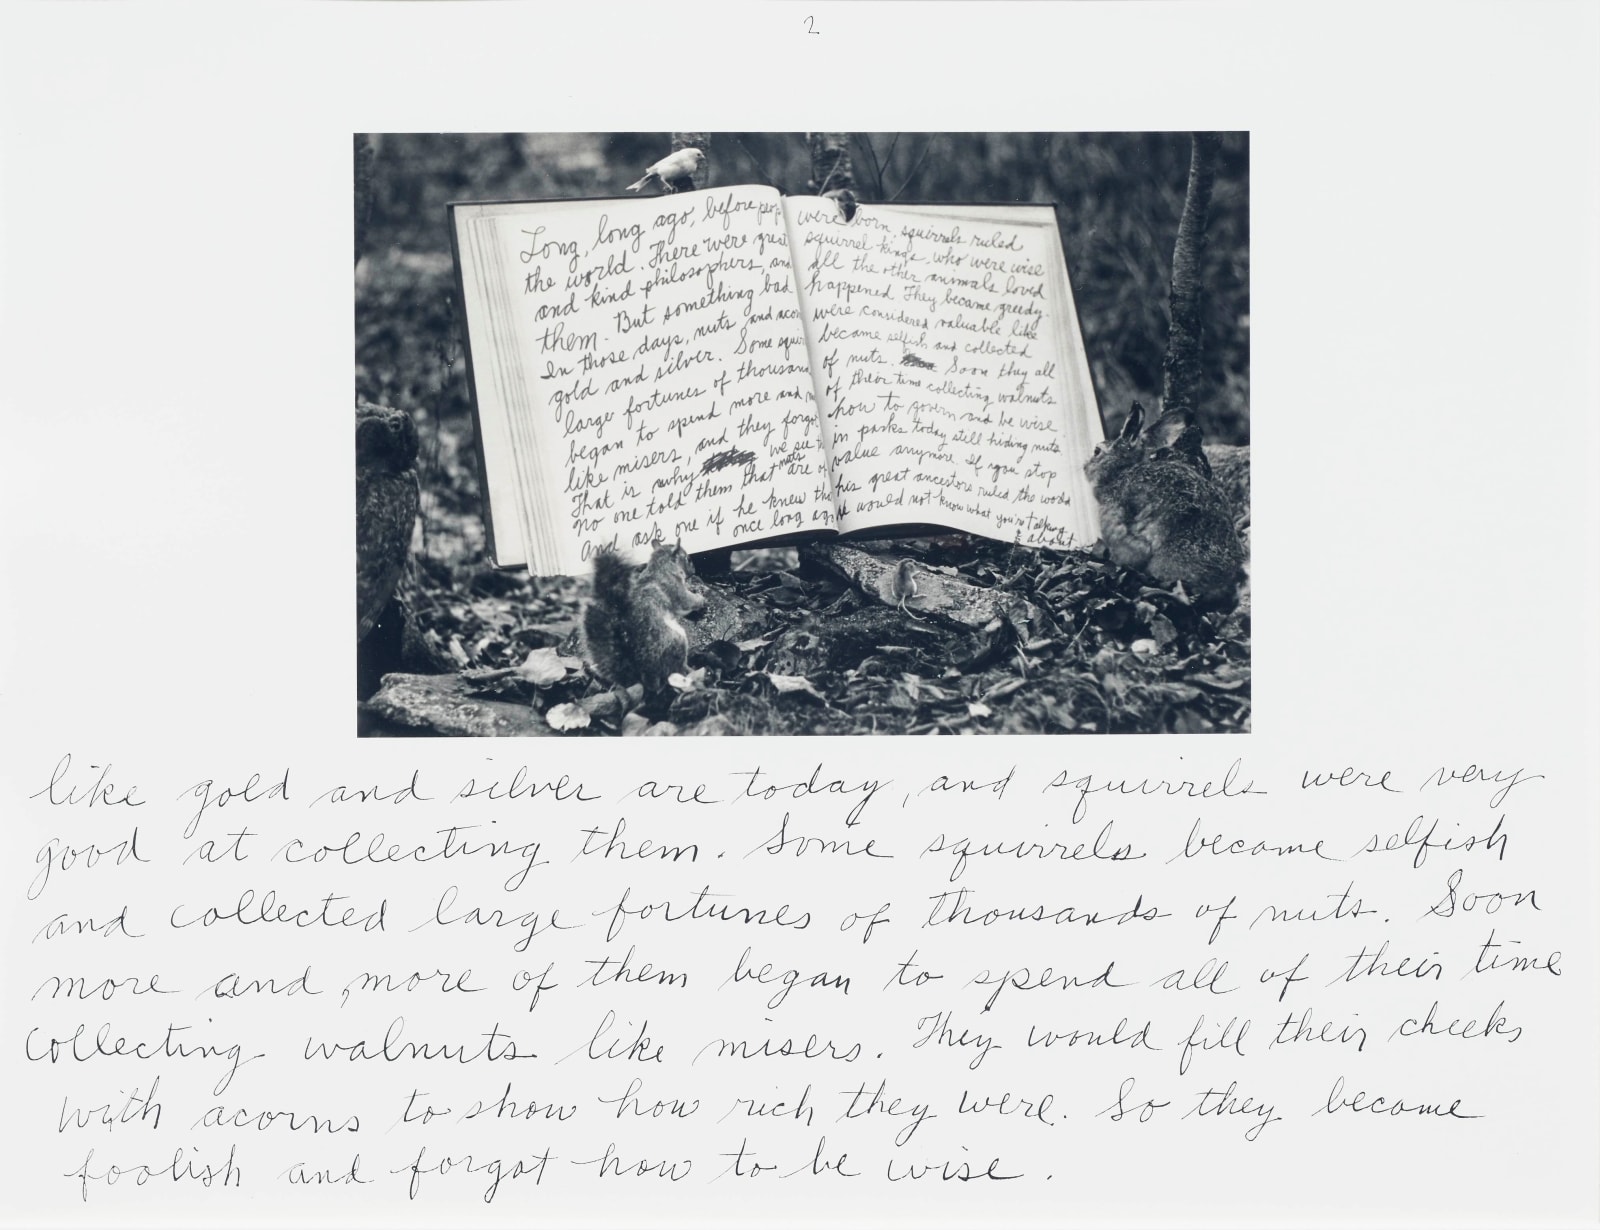 2
Long, long ago, before peop were born, squirrels ruled
the world. There were great squirrel kings, who were wise
and kind philosophers, and all the other animals loved
them. But something bad happened. They became greedy.
In those days, nuts and acor were considered valuable like
gold and silver. Some squir became selfish and collected
large fortunes of thousan of nuts. Soon they all
began to spend more and m of their time collecting walnuts
like misers, and they forgo how to govern and be wise.
That is why we see th in parks today still hiding nuts
no one told them that nuts are of value anymore. If you stop
And ask one if he knew tha his great ancestors ruled the world
once long ago he would not know what you're talking
about
like gold and silver are today, and squirrels were very
good at collecting them. Some squirrels became selfish
and collected large fortunes of thousands of nuts. Soon
more and more of them began to spend all of their time
collecting walnuts like misers. They would fill their cheeks
with acorns to show how rich they were. So they became
foolish and forgot how to be wise.